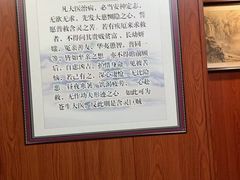 凡大医治病，必当安神定志，
无欲无求，先发大慈恻隐之心，誓
愿普救含灵之苦。若有疾厄来求救
者，不得问其贵贱贫富，长幼妍
媸，怨亲善友，华夷愚智，普同一
等，皆如至亲之想。亦不得瞻前顾
后，自虑吉凶，护惜身命。见彼苦
恼，若己有之，深心凄怆，勿避险
昼夜寒暑，饥渴疲劳，一心赴
救，无作功夫形迹之心。如此可为
苍生大医，反此则是含灵巨贼